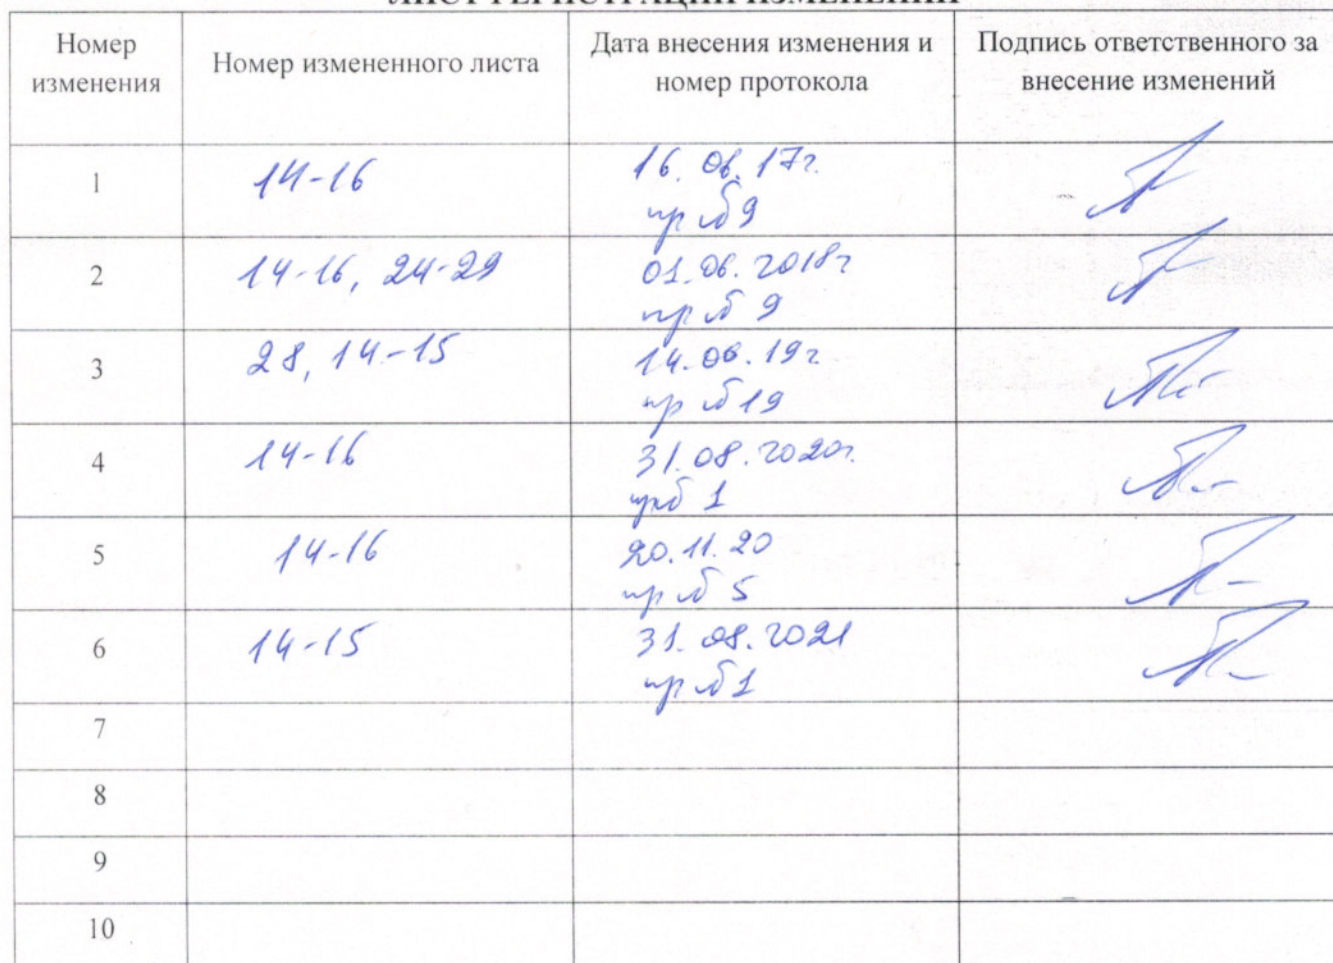 ЛИСТ РЕГИСТРАЦИИ ИЗМЕНЕНИЙ
Номер изменения
Номер измененного листа
Дата внесения изменения и номер протокола
Подпись ответственного за внесение изменений
1
14-16
16.06.17г.
пр №9
2
14-16, 24-29
01.06.2018г
пр № 9
3
28, 14-15
14.06.19г
пр №19
4
14-16
31.08.2020г.
пр№ 1
5
14-16
20.11.20
пр № 5
6
14-15
31.08.2021
пр №1
7
8
9
10